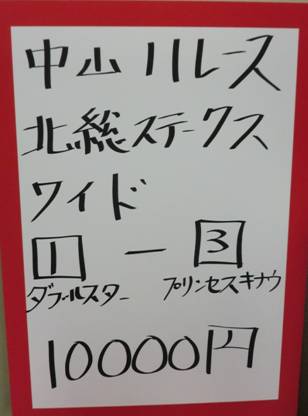 中山11レース
北総ステークス
ワイド
1 ー 3
ダブルスター プリンセスキナウ
10000円